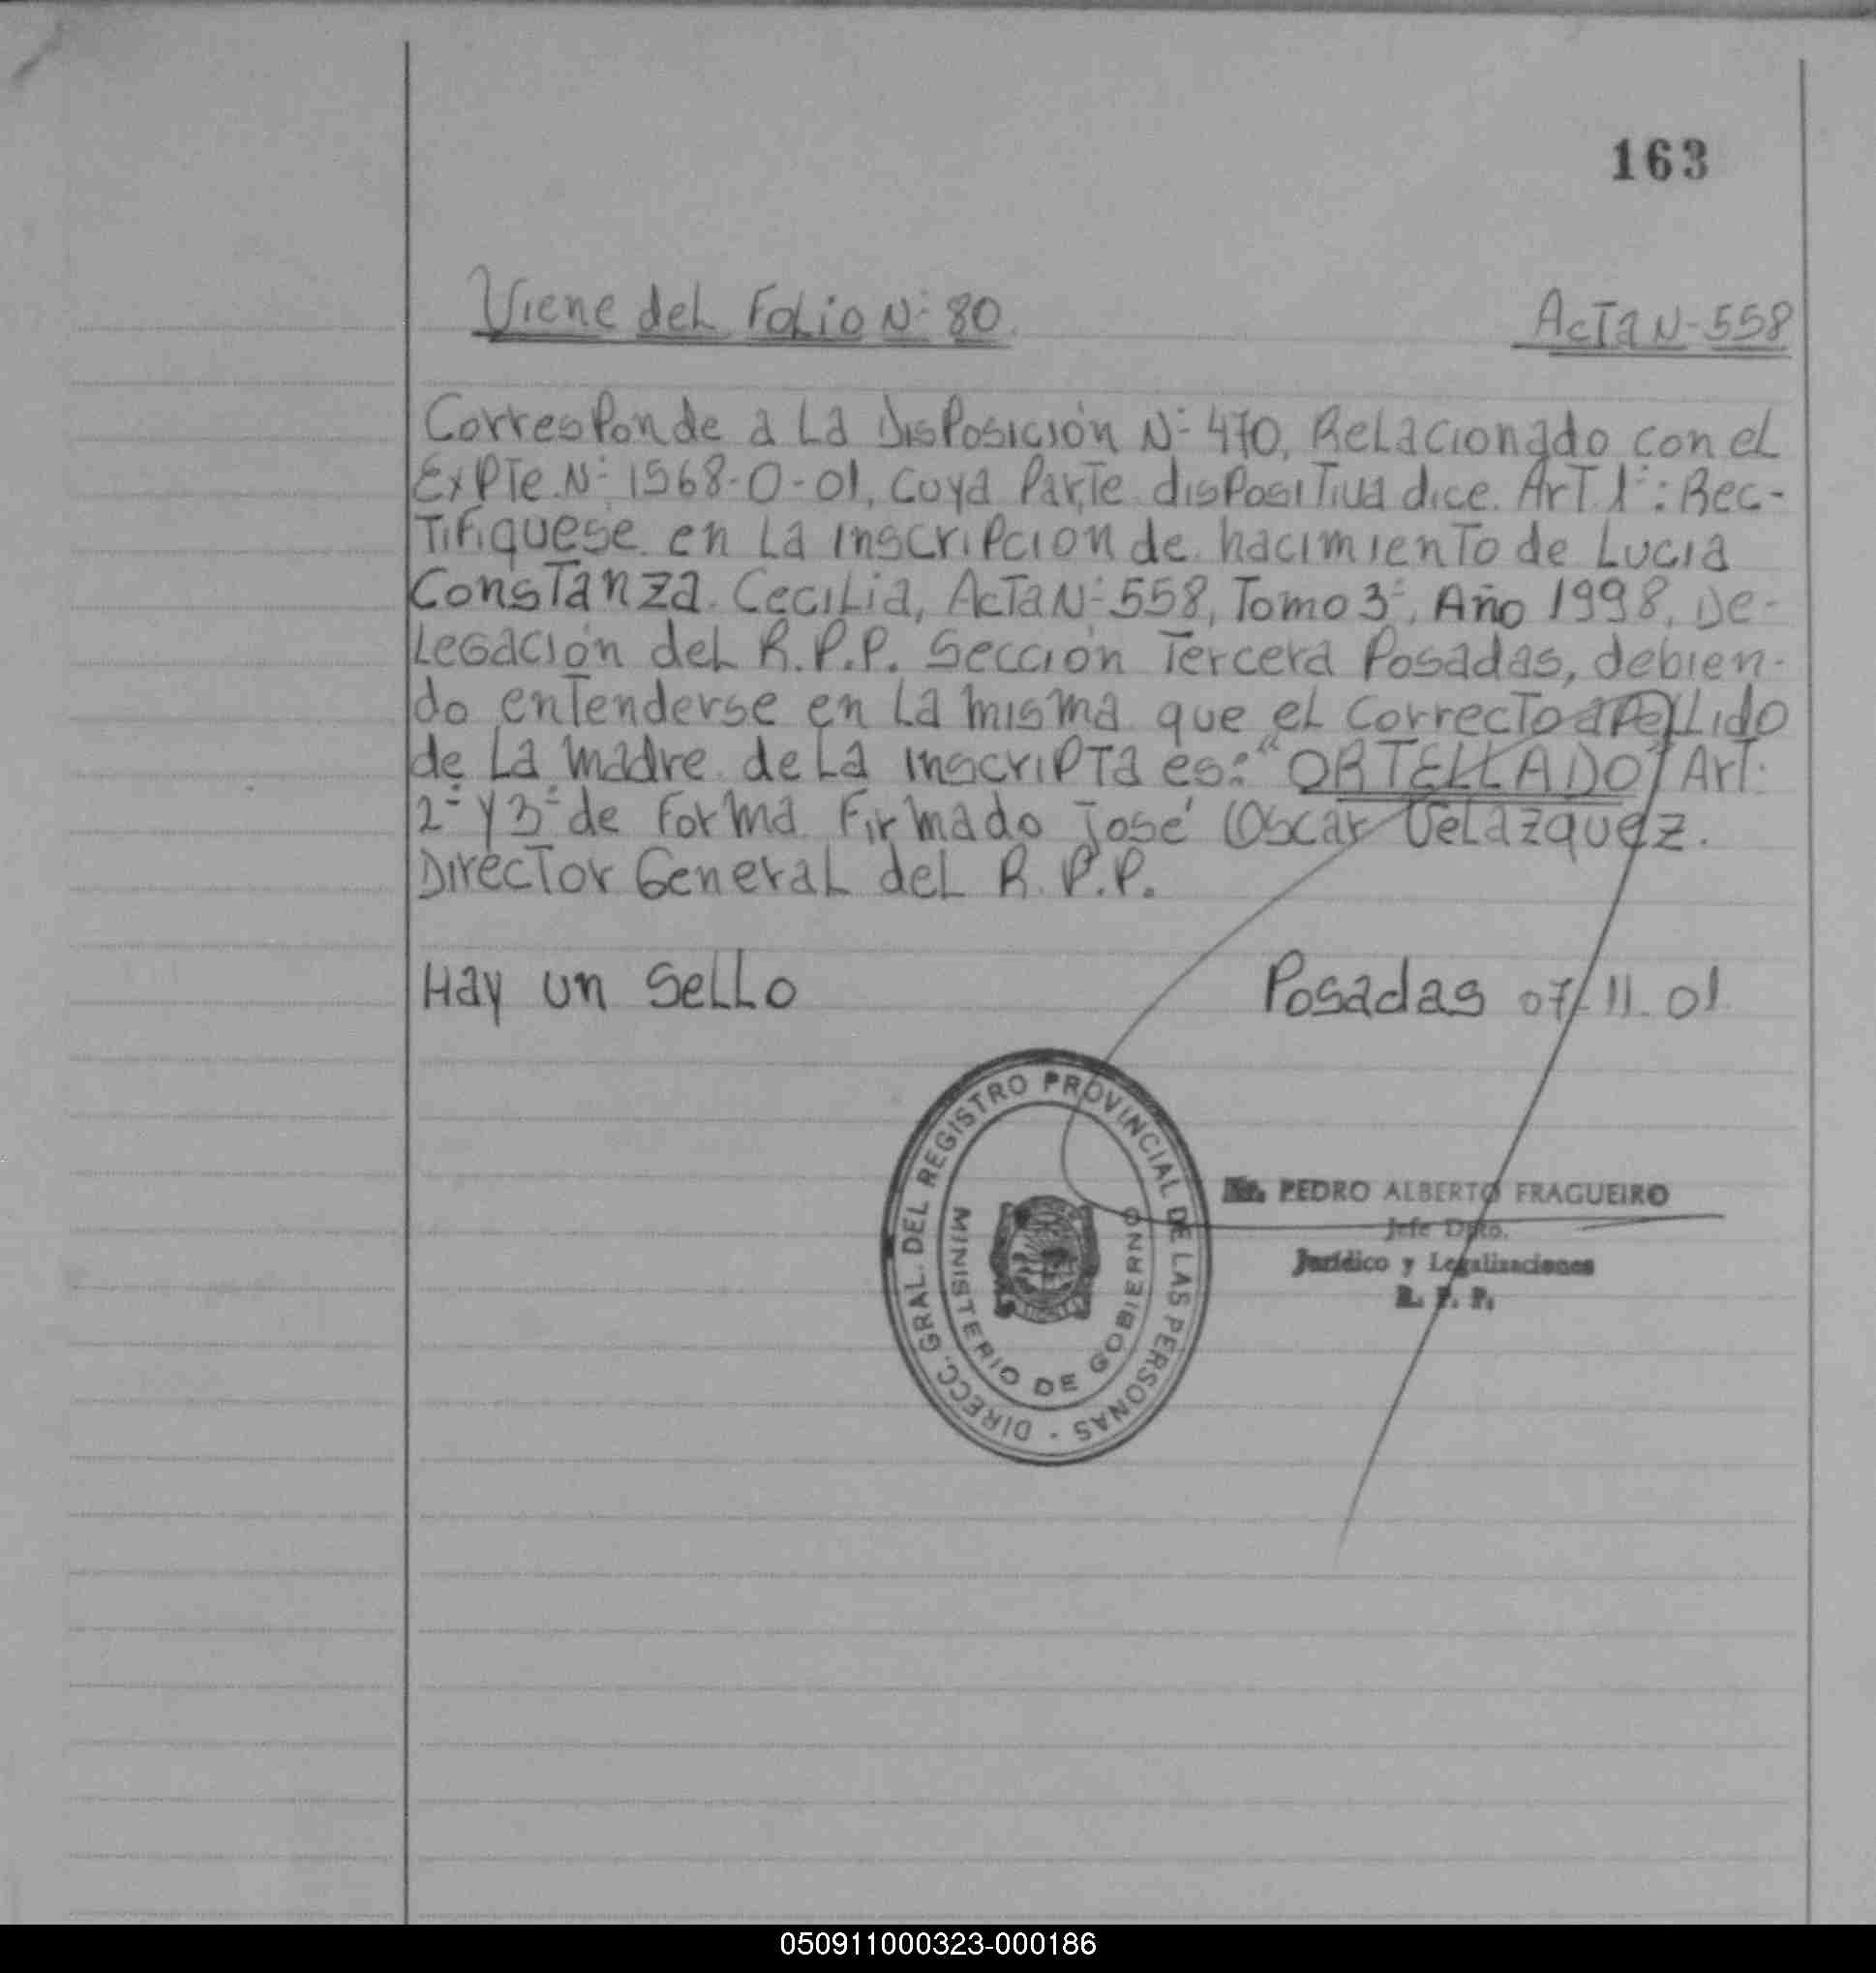 163
Viene del Folio N-: 80.
Acta N-558
Corresponde a la Disposición N-: 470, Relacionado con el
Expte. N-: 1968-0-01, cuya Parte dispositiva dice. Art. 1-: Rec-
tifiquese en la inscripcion de nacimiento de Lucia
Constanza Cecilia, Acta N-: 558, Tomo 3-, Año 1998, De-
legación del R.P.P. Sección Tercera Posadas, debien-
do entenderse en la misma que el correcto apellido
de la madre de la inscripta es: "ORTELLADO" Art.
2- y 3- de forma Firmado José Oscar Velazquez.
Director General del R.P.P.
Hay un sello
Posadas 07-11-01
DIRECC. GRAL. DEL REGISTRO PROVINCIAL DE LAS PERSONAS -
MINISTERIO DE GOBIERNO
PEDRO ALBERTO FRAGUEIRO
Jefe Dpto.
Jurídico y Legalizaciones
R. P. P.
050911000323-000186